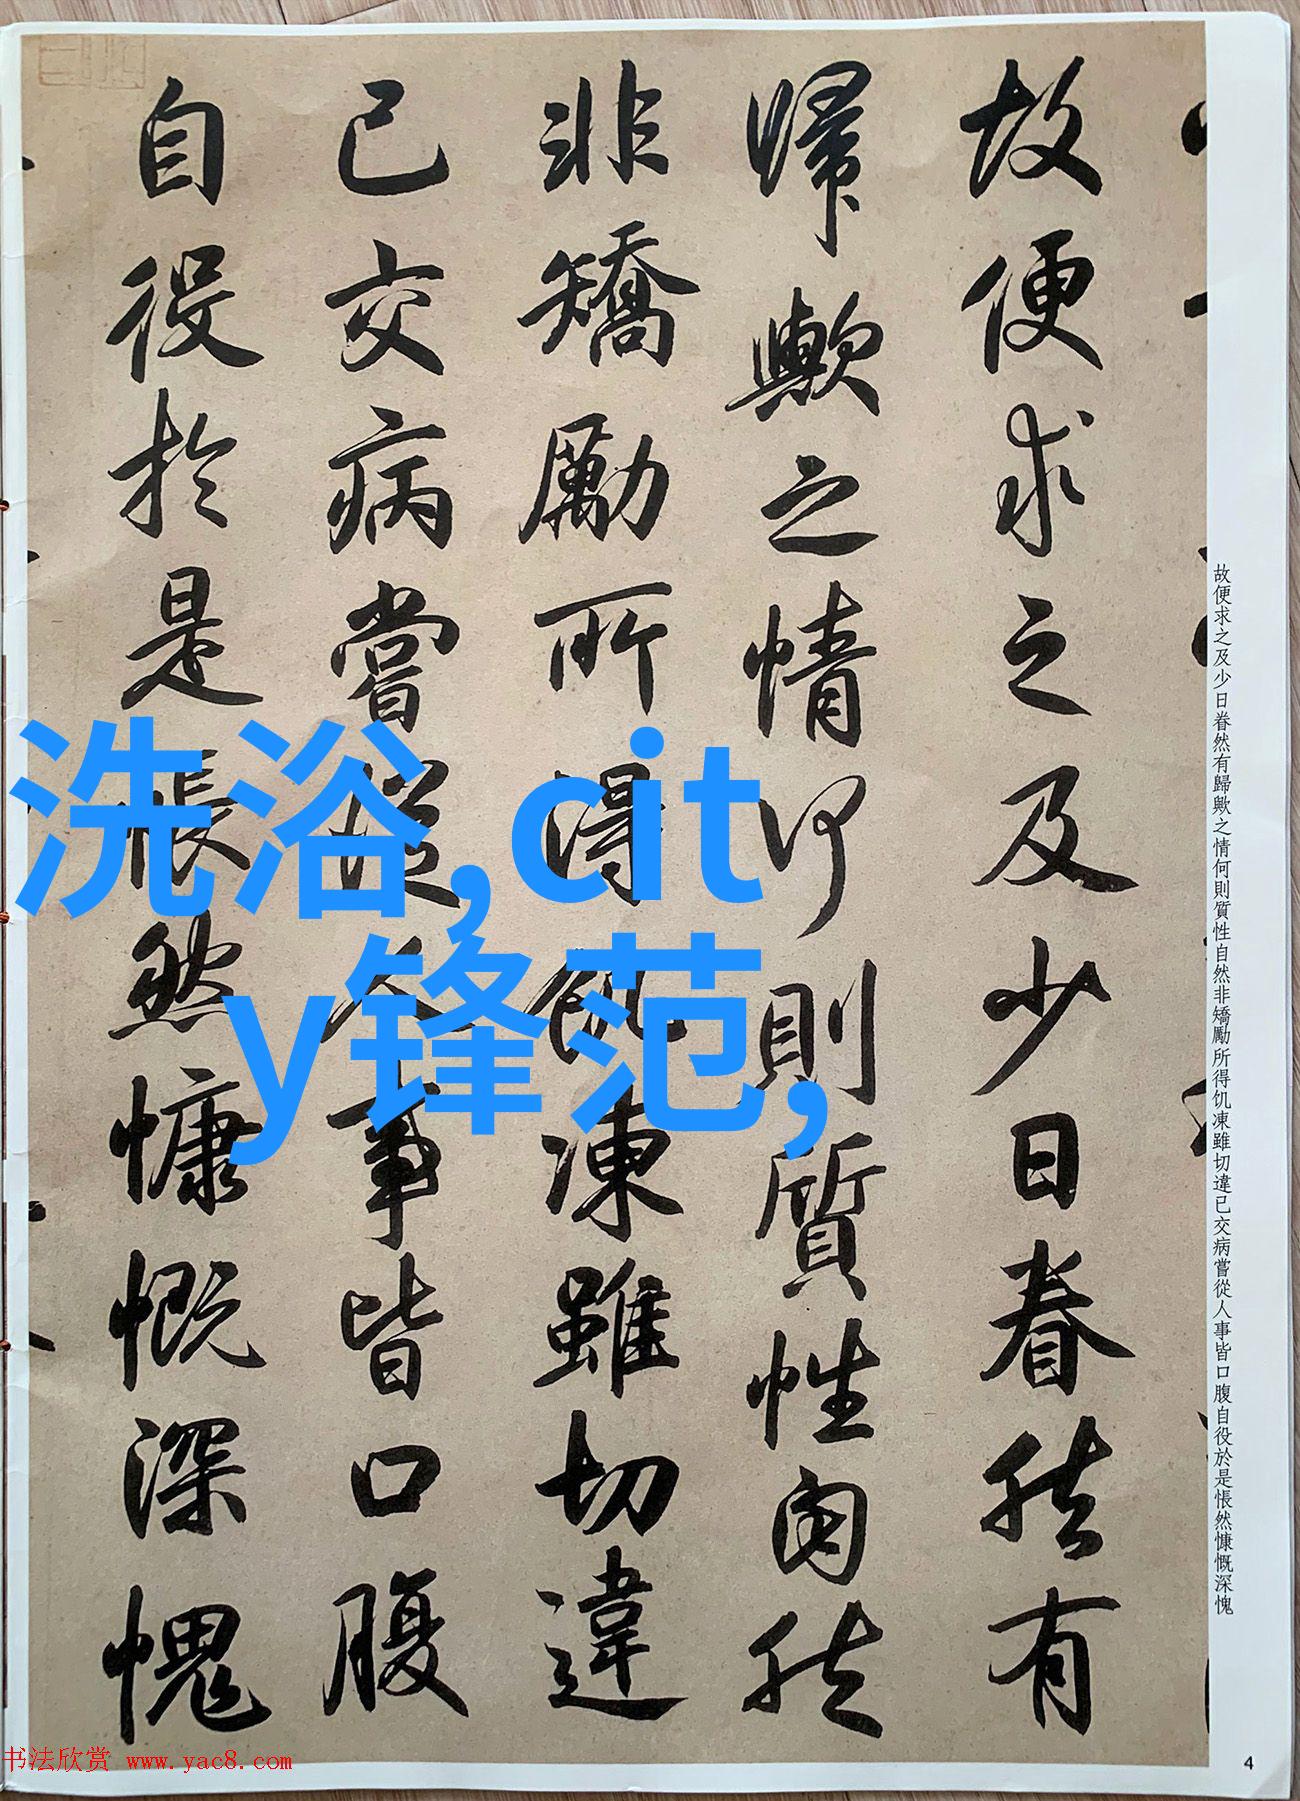 故便求之及少日眷然有
歸歟之情何則質性自然
非矯勵所得飢凍雖切違
已交病嘗從人事皆口腹
自役於是悵然慷慨深愧
故便求之及少日眷然有歸歟之情何則質性自然非矯勵所得饥凍雖切違已交病嘗從人事皆口腹自役於是悵然慷慨深愧
洗浴,cit
y锋范,
书法欣赏 www.yac8.com
4